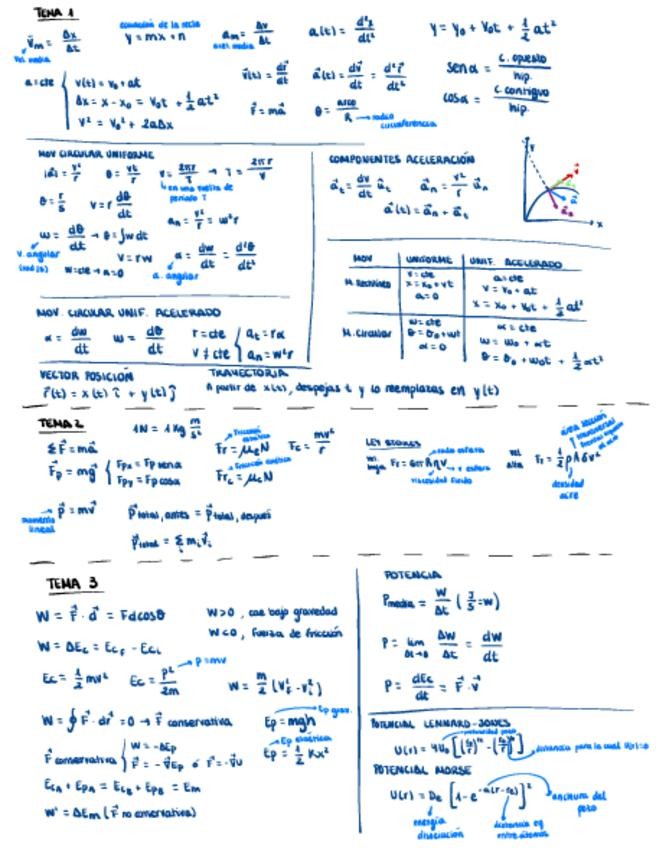 TEMA 1
v⃗m = Δx/Δt
Vel. media
ecuación de la recta
y = mx + n
am = Δv/Δt
acel. media
a(t) = d²x/dt²
y = y₀ + v₀t + ½ at²
a = cte { v(t) = v₀ + at
Δx = x - x₀ = v₀t + ½ at²
v² = v₀² + 2aΔx
v⃗(t) = dr⃗/dt
a⃗(t) = dv⃗/dt = d²r⃗/dt²
F⃗ = ma⃗
θ = arco/R → radio circunferencia
senα = c. opuesto/hip.
cosα = c. contiguo/hip.
MOV CIRCULAR UNIFORME
|a⃗| = v²/r
θ = vt/r
v = 2πr/T → T = 2πr/v
en una vuelta de periodo T
v = r dθ/dt
an = v²/r = w²r
w = dθ/dt → θ = ∫w dt
V. angular (rad/s)
w = cte → α = 0
v = rw
α = dw/dt = d²θ/dt²
a. angular
COMPONENTES ACELERACIÓN
a⃗t = dv/dt u⃗t
a⃗n = v²/r u⃗n
a⃗(t) = a⃗n + a⃗t
x
MOV UNIFORME UNIF. ACELERADO
M. Rectilíneo
v = cte
x = x₀ + vt
a = 0
a = cte
v = v₀ + at
x = x₀ + v₀t + ½ at²
M. Circular
w = cte
θ = θ₀ + wt
α = 0
α = cte
w = w₀ + αt
θ = θ₀ + w₀t + ½ αt²
MOV. CIRCULAR UNIF. ACELERADO
α = dw/dt
w = dθ/dt
r = cte
v ≠ cte { at = rα
an = w²r
VECTOR POSICIÓN
r⃗(t) = x(t) î + y(t) ĵ
TRAYECTORIA
A partir de x(t), despejas t y lo reemplazas en y(t)
TEMA 2
1N = 1 Kg m/s²
ΣF⃗ = ma⃗
F⃗p = mg⃗ { Fpx = Fp senα
Fpy = Fp cosα
Fricción estática
Fr = μeN
Fricción cinética
Frc = μcN
Fc = mv²/r
momento lineal
p⃗ = mv⃗
p⃗total, antes = p⃗total, después
p⃗total = Σ mᵢv⃗ᵢ
LEY STOKES
vel. baja Fr = 6πRηV
radio esfera
v esfera
viscosidad fluido
vel. alta Fr = ½ρAδv²
densidad aire
TEMA 3
W = F⃗ · d⃗ = Fd cosθ
W>0, cae bajo gravedad
W<0, fuerza de fricción
W = ΔEc = Ecf - Eci
Ec = ½ mv²
Ec = p²/2m → p = mv
W = m/2 (vf² - vi²)
W = ∮ F⃗ · dr⃗ = 0 → F⃗ conservativa
Ep = mgh
Ep grav.
F⃗ conservativa { W = -ΔEp
F⃗ = -∇⃗Ep ó F⃗ = -∇⃗U
Ep elástica
Ep = ½ Kx²
EcA + EpA = EcB + EpB = Em
W' = ΔEm (F⃗ no conservativa)
POTENCIA
Pmedia = W/Δt (J/S = W)
P = lim Δt→0 ΔW/Δt = dW/dt
P = dEc/dt = F⃗ · v⃗
POTENCIAL LENNARD-JONES
profundidad pozo
distancia para la cual U(r)=0
POTENCIAL MORSE
U(r) = De [1 - e^-a(r-re)]²
anchura del pozo
energía disociación
distancia eq entre átomos